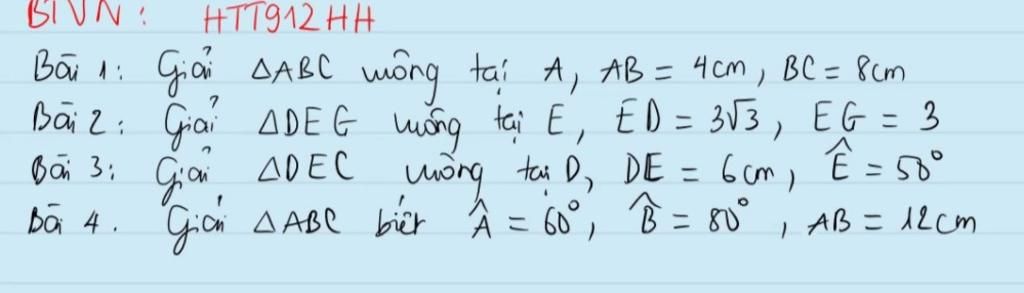 BTVN: HTT912HH
Bài 1: Giải △ABC vuông tại A, AB = 4cm, BC = 8cm
Bài 2: Giải △DEG vuông tại E, ED = 3√3, EG = 3
Bài 3: Giải △DEC vuông tại D, DE = 6cm, Ê = 50°
Bài 4. Giải △ABC biết Â = 60°, B̂ = 80°, AB = 12cm